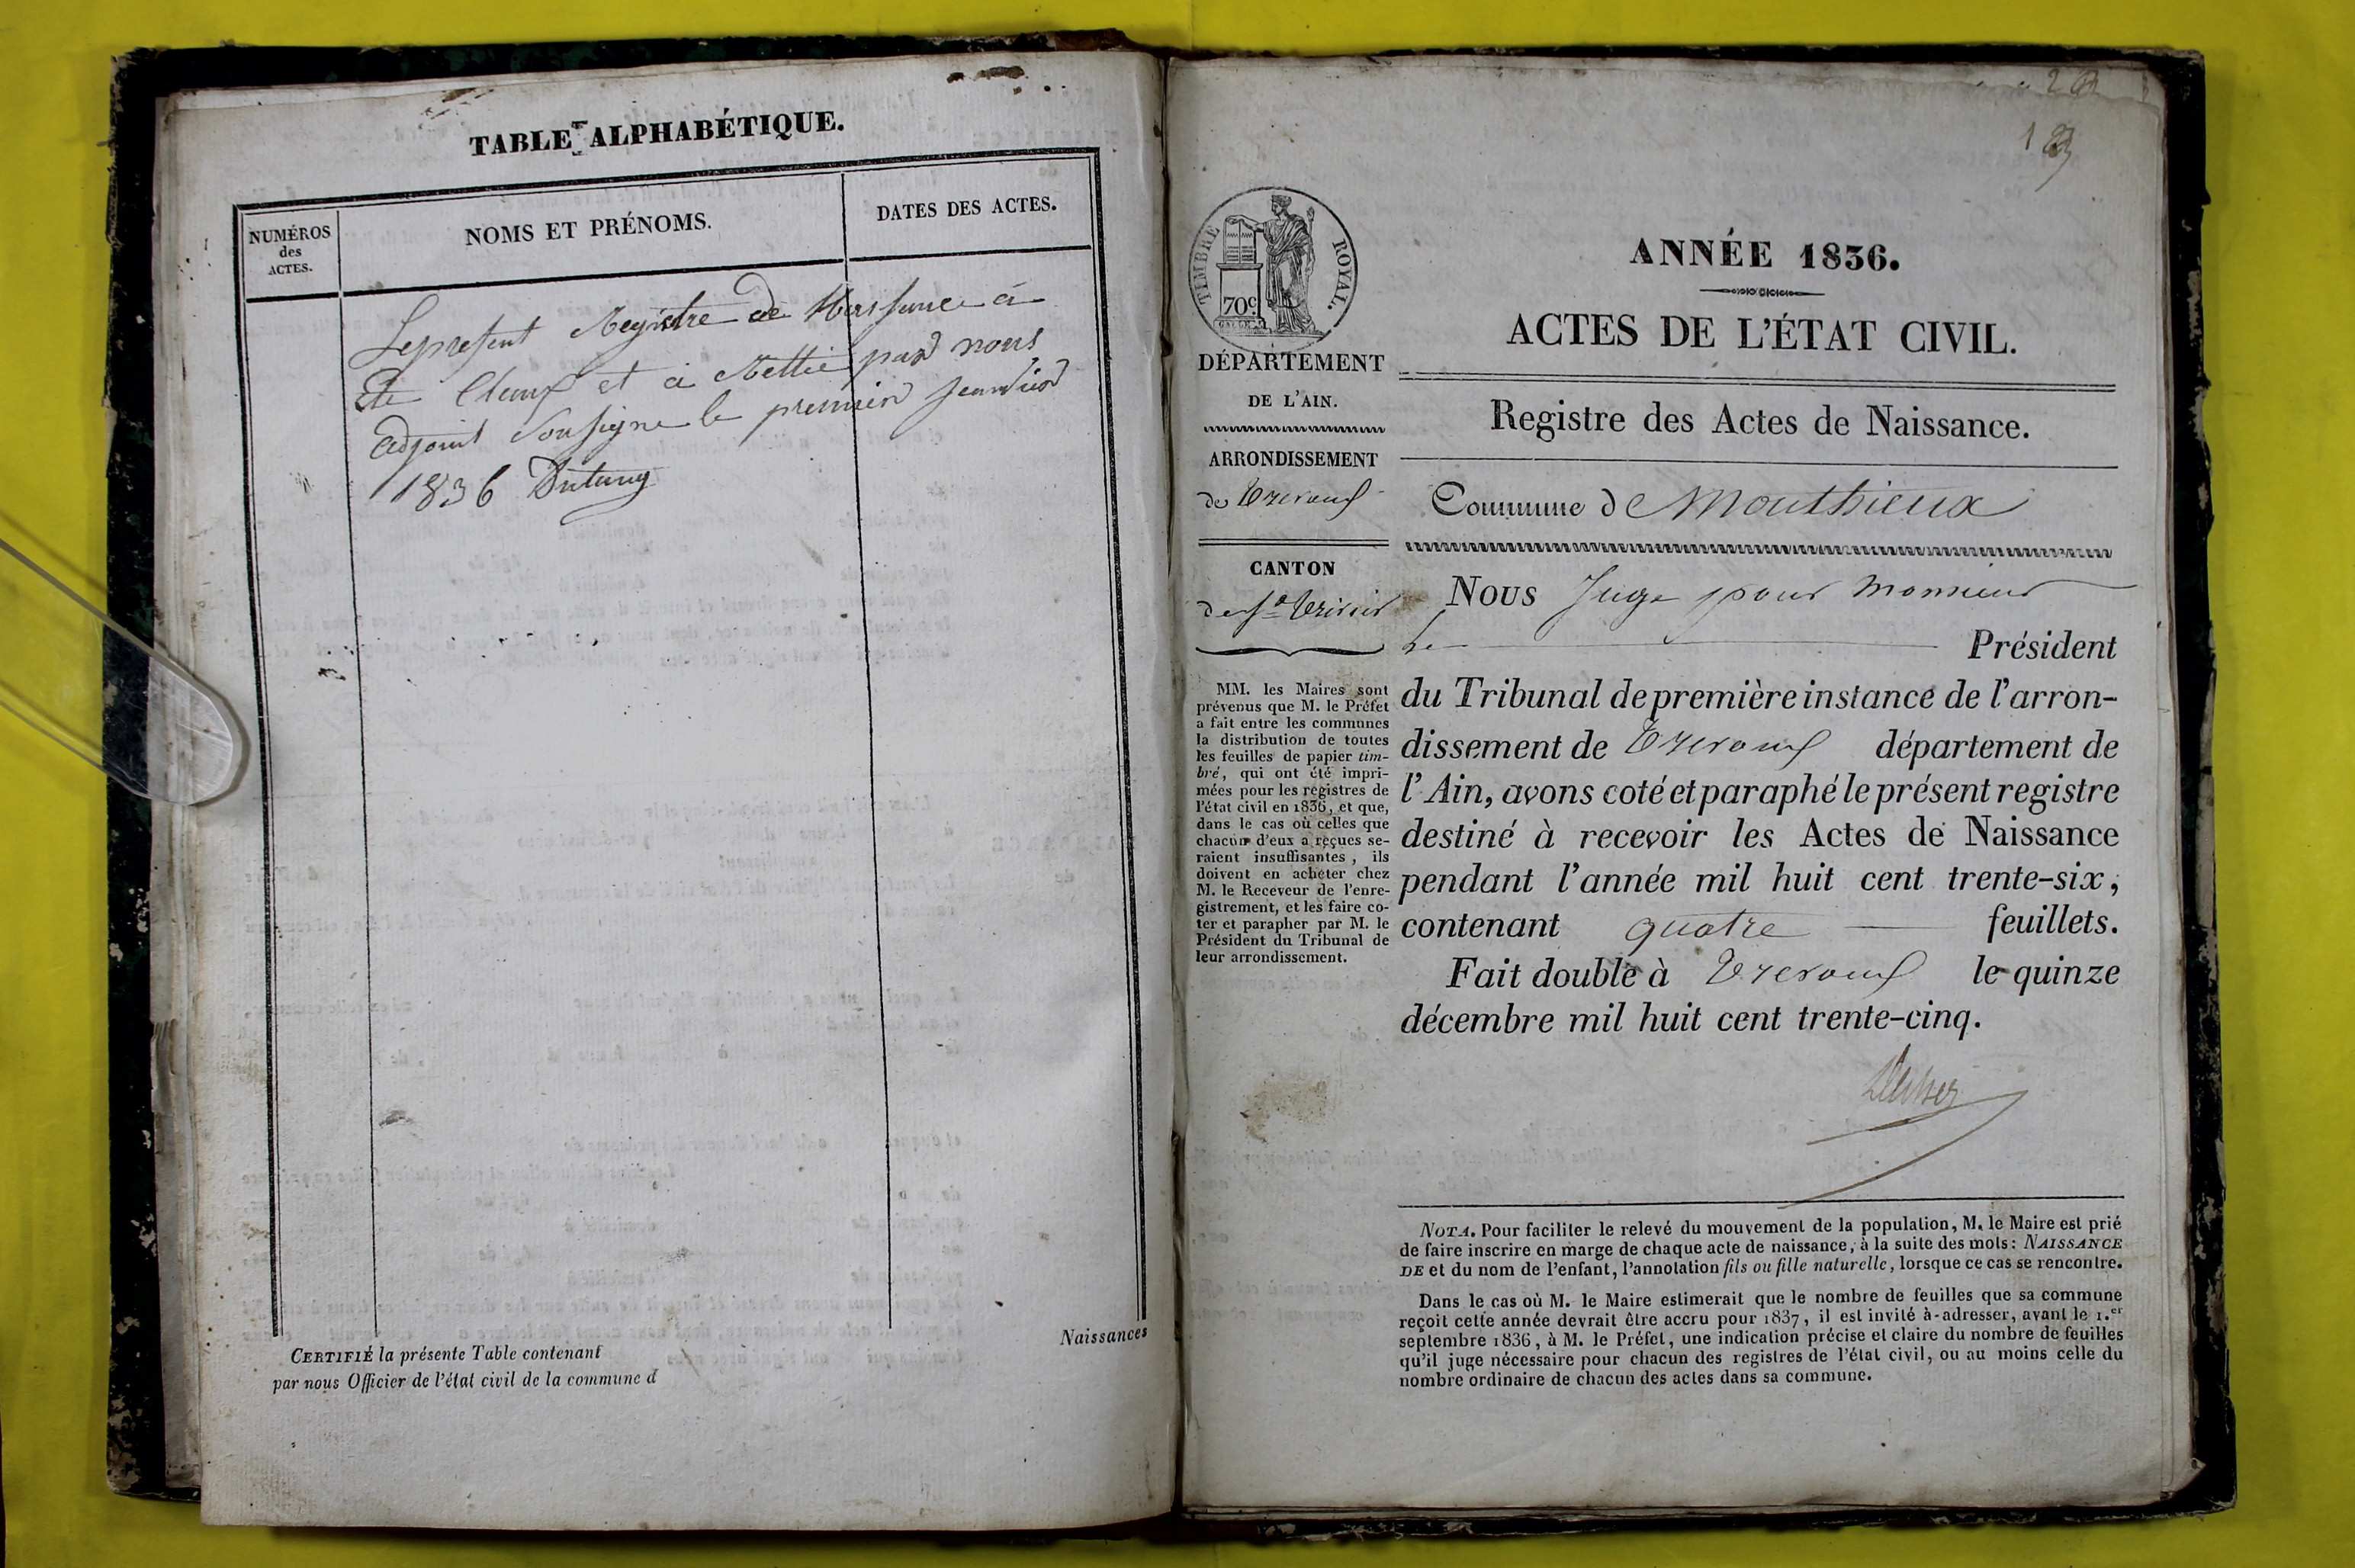 TABLE ALPHABÉTIQUE.
NUMÉROS
des
ACTES.
NOMS ET PRÉNOMS.
DATES DES ACTES.
Le present Registre de Naissance à
Ete Clauz et a Rettée par nous
adjoint Sousigne le premier Janvier
1836 Dutang
Naissances
CERTIFIÉ la présente Table contenant
par nous Officier de l'état civil de la commune d
TIMBRE ROYAL.
70c
DÉPARTEMENT
DE L'AIN.
ARRONDISSEMENT
de Trevoux
CANTON
de St Trivier
MM. les Maires sont
prévenus que M. le Préfet
a fait entre les communes
la distribution de toutes
les feuilles de papier tim-
bré, qui ont été impri-
mées pour les registres de
l'état civil en 1836, et que,
dans le cas où celles que
chacun d'eux a reçues se-
raient insuffisantes, ils
doivent en acheter chez
M. le Receveur de l'enre-
gistrement, et les faire co-
ter et parapher par M. le
Président du Tribunal de
leur arrondissement.
ANNÉE 1836.
ACTES DE L'ÉTAT CIVIL.
Registre des Actes de Naissance.
Commune de Monthieux
NOUS Juge pour Monsieur
le Président
du Tribunal de première instance de l'arron-
dissement de Trevoux département de
l'Ain, avons coté et paraphé le présent registre
destiné à recevoir les Actes de Naissance
pendant l'année mil huit cent trente-six,
contenant quatre feuillets.
Fait double à Trevoux le quinze
décembre mil huit cent trente-cinq.
NOTA. Pour faciliter le relevé du mouvement de la population, M. le Maire est prié
de faire inscrire en marge de chaque acte de naissance, à la suite des mots: NAISSANCE
DE et du nom de l'enfant, l'annotation fils ou fille naturelle, lorsque ce cas se rencontre.
Dans le cas où M. le Maire estimerait que le nombre de feuilles que sa commune
reçoit cette année devrait être accru pour 1837, il est invité à adresser, avant le 1.er
septembre 1836, à M. le Préfet, une indication précise et claire du nombre de feuilles
qu'il juge nécessaire pour chacun des registres de l'état civil, ou au moins celle du
nombre ordinaire de chacun des actes dans sa commune.